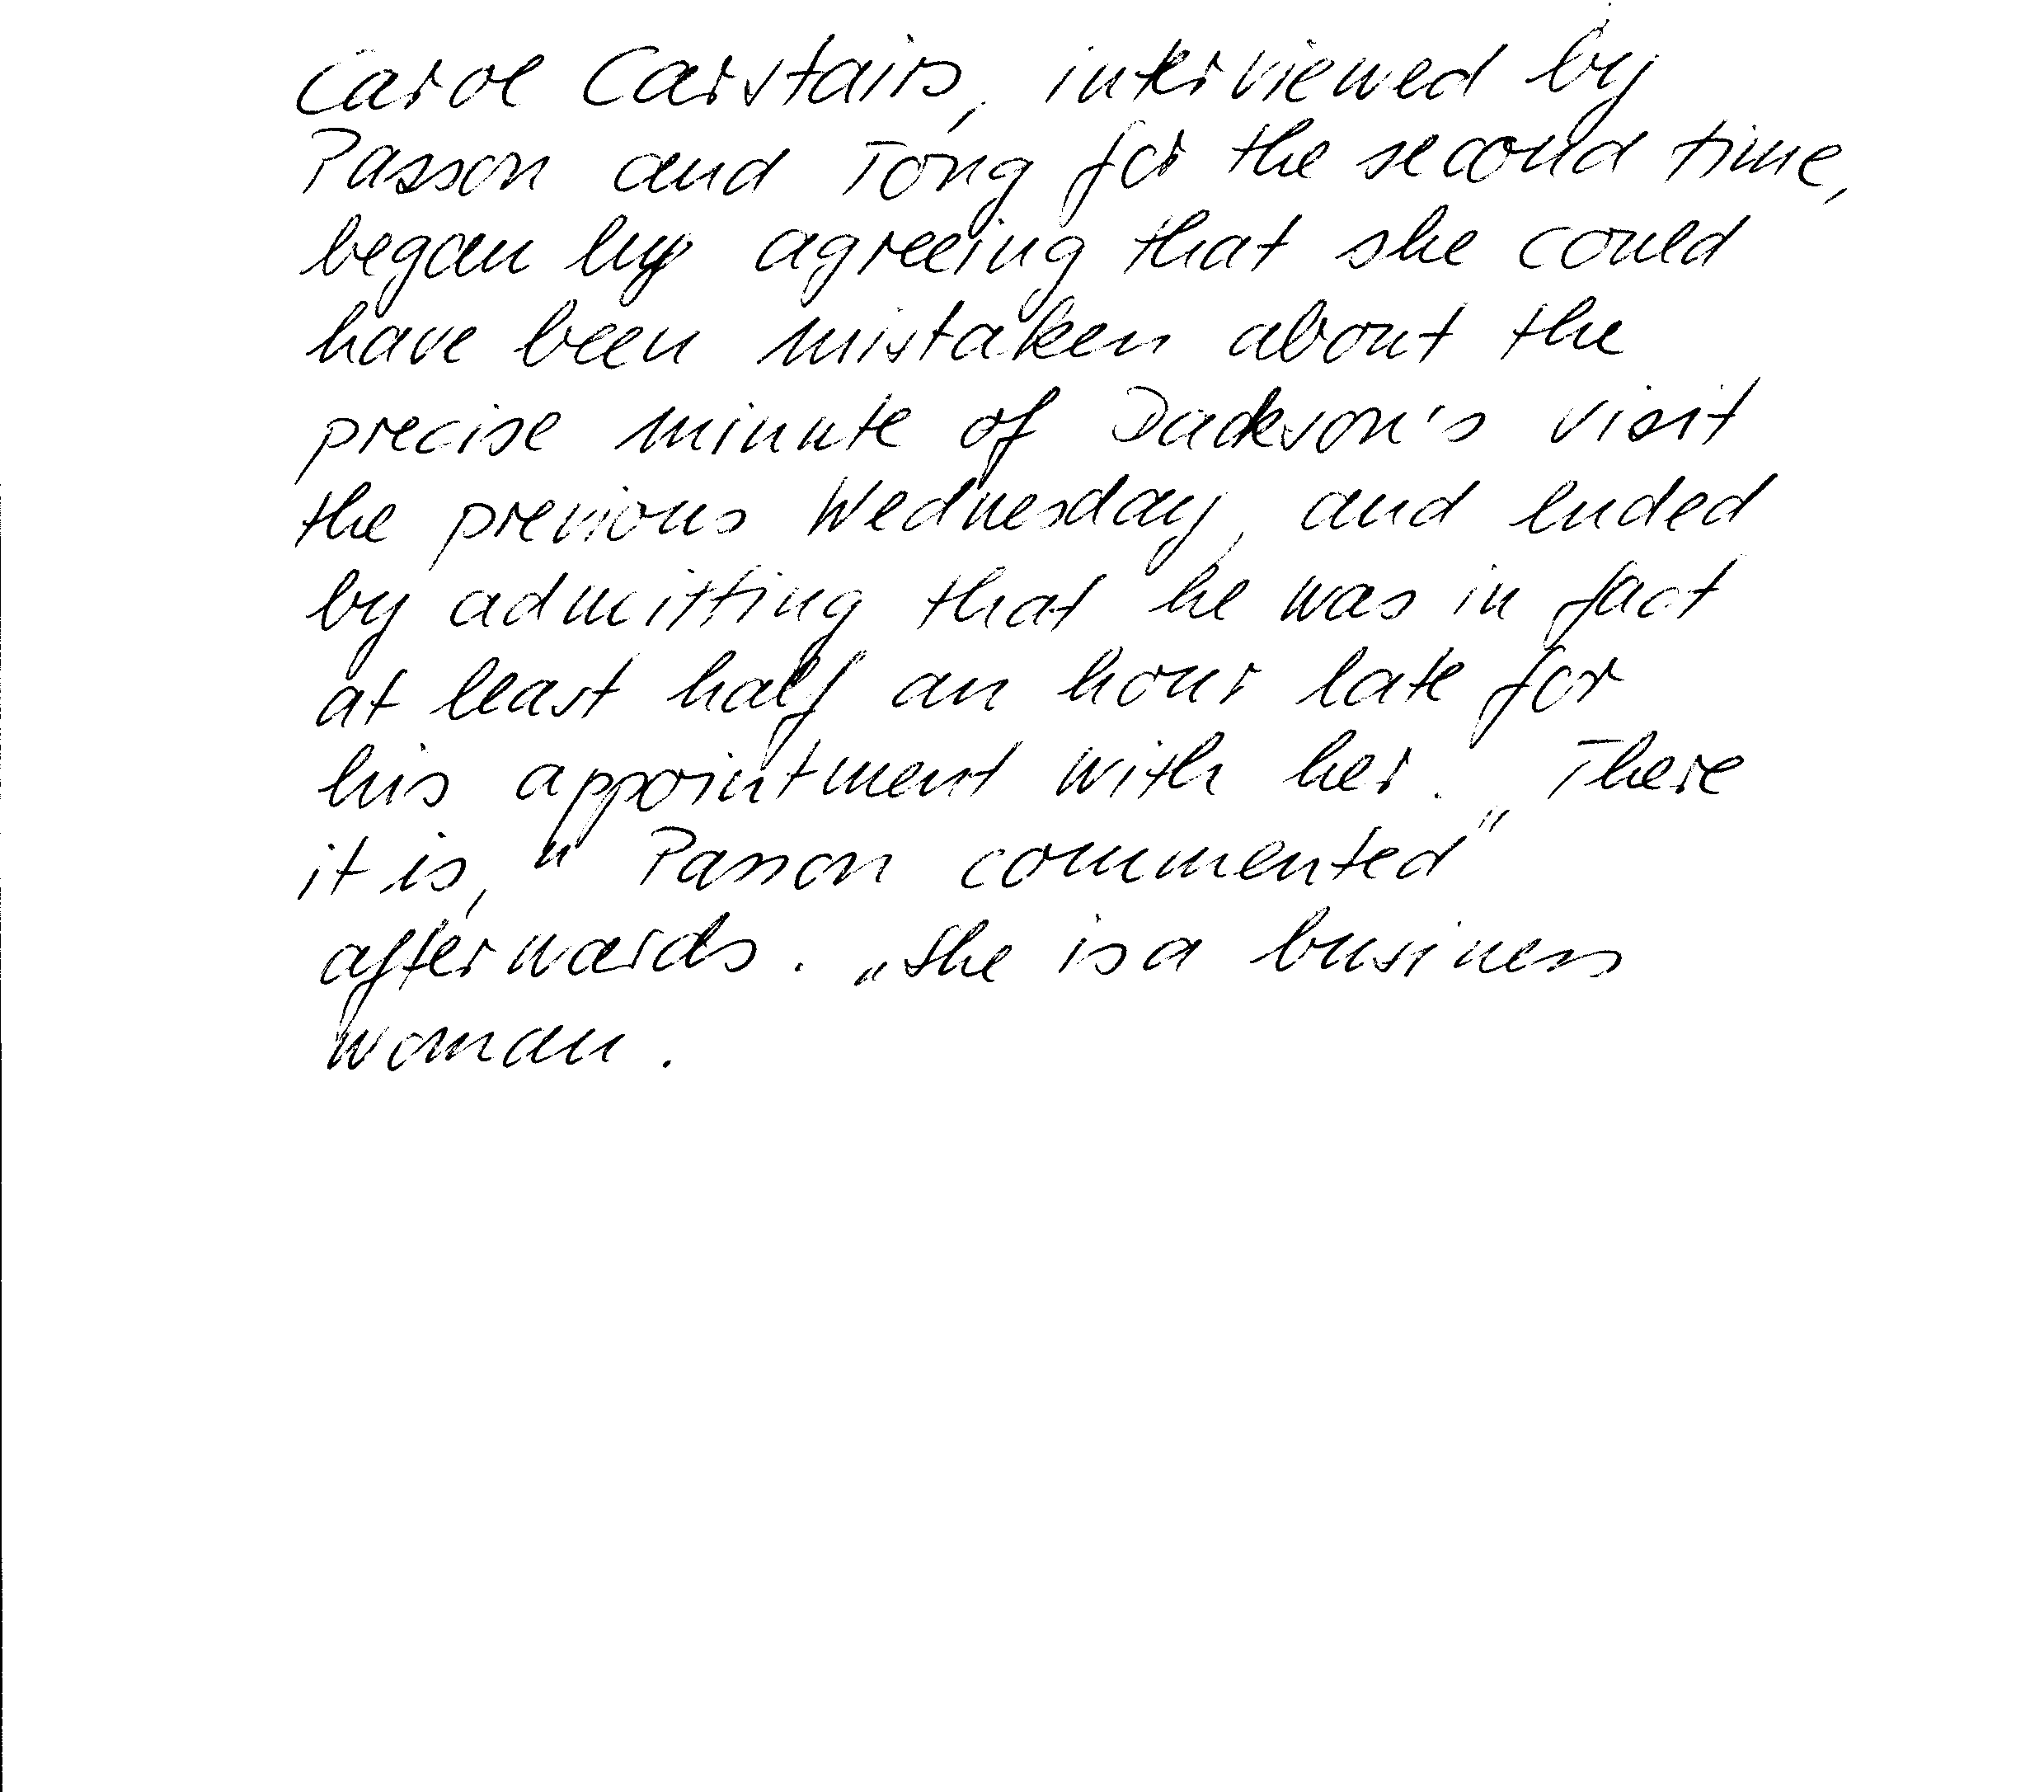 Carol Carstairs, interviewed by
Passon and Tong for the second time,
began by agreeing that she could
have been mistaken about the
precise minute of Jackson's visit
the previous Wednesday, and ended
by admitting that he was in fact
at least half an hour late for
his appointment with her. „There
it is," Passon commented
afterwards. „She is a business
woman.